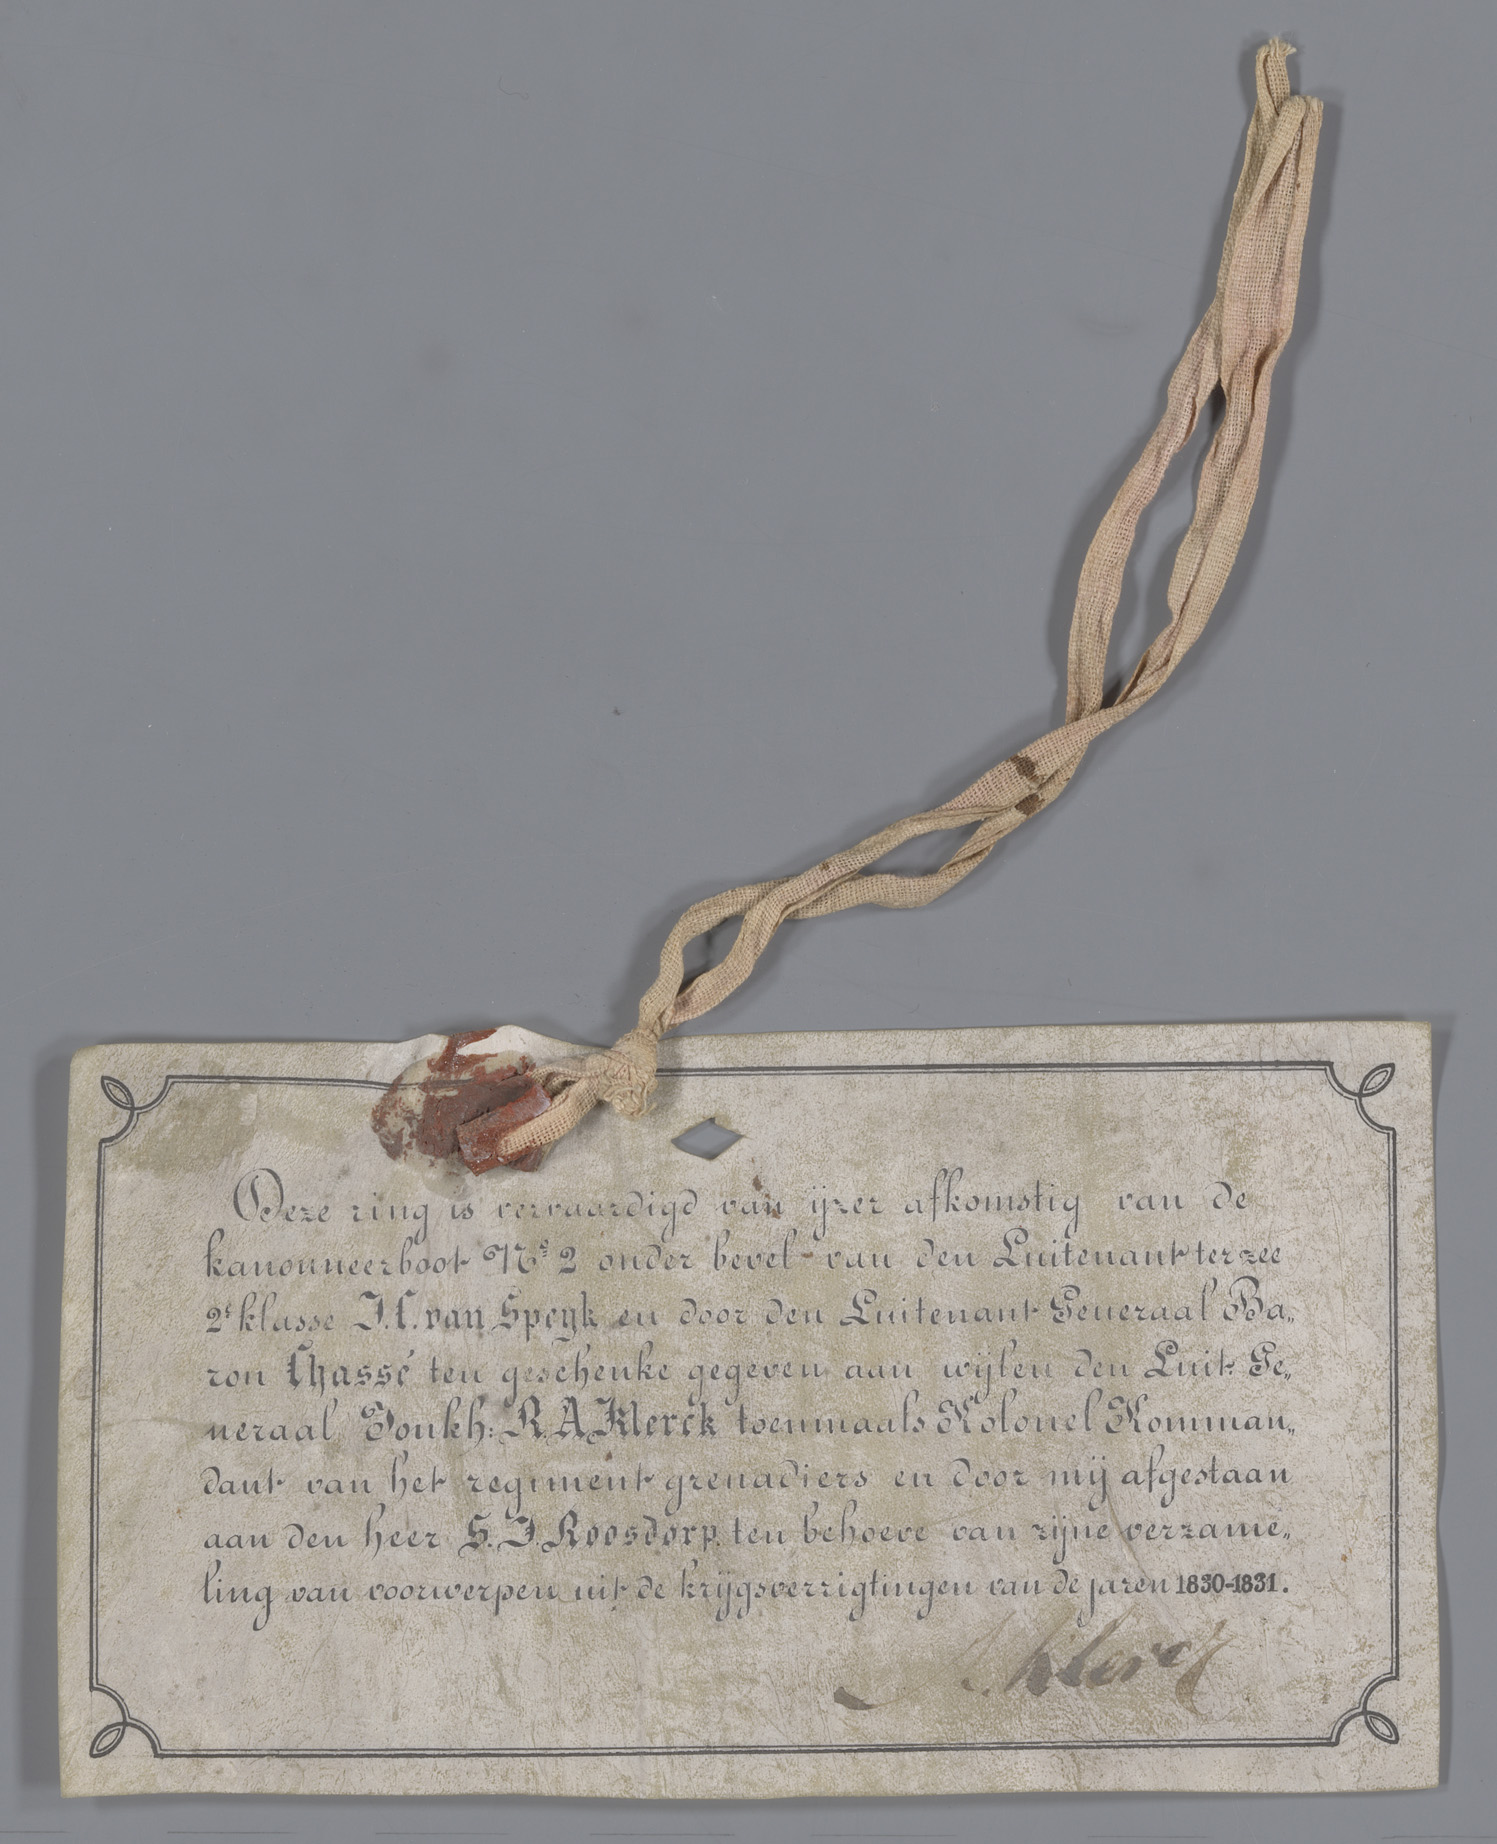 Deze ring is vervaardigd van ijzer afkomstig van de
kanonneerboot Nº 2 onder bevel van den Luitenant ter zee
2e klasse J.C. van Speyk en door den Luitenant Generaal Ba„
ron Chassé ten geschenke gegeven aan wijlen den Luit. Ge„
neraal Jonkh: R.A. Klerck toenmaals Kolonel Komman„
dant van het regiment grenadiers en door mij afgestaan
aan den heer S.J. Roosdorp. ten behoeve van zijne verzame„
ling van voorwerpen uit de krijgsverrigtingen van de jaren 1830-1831.
Klerck